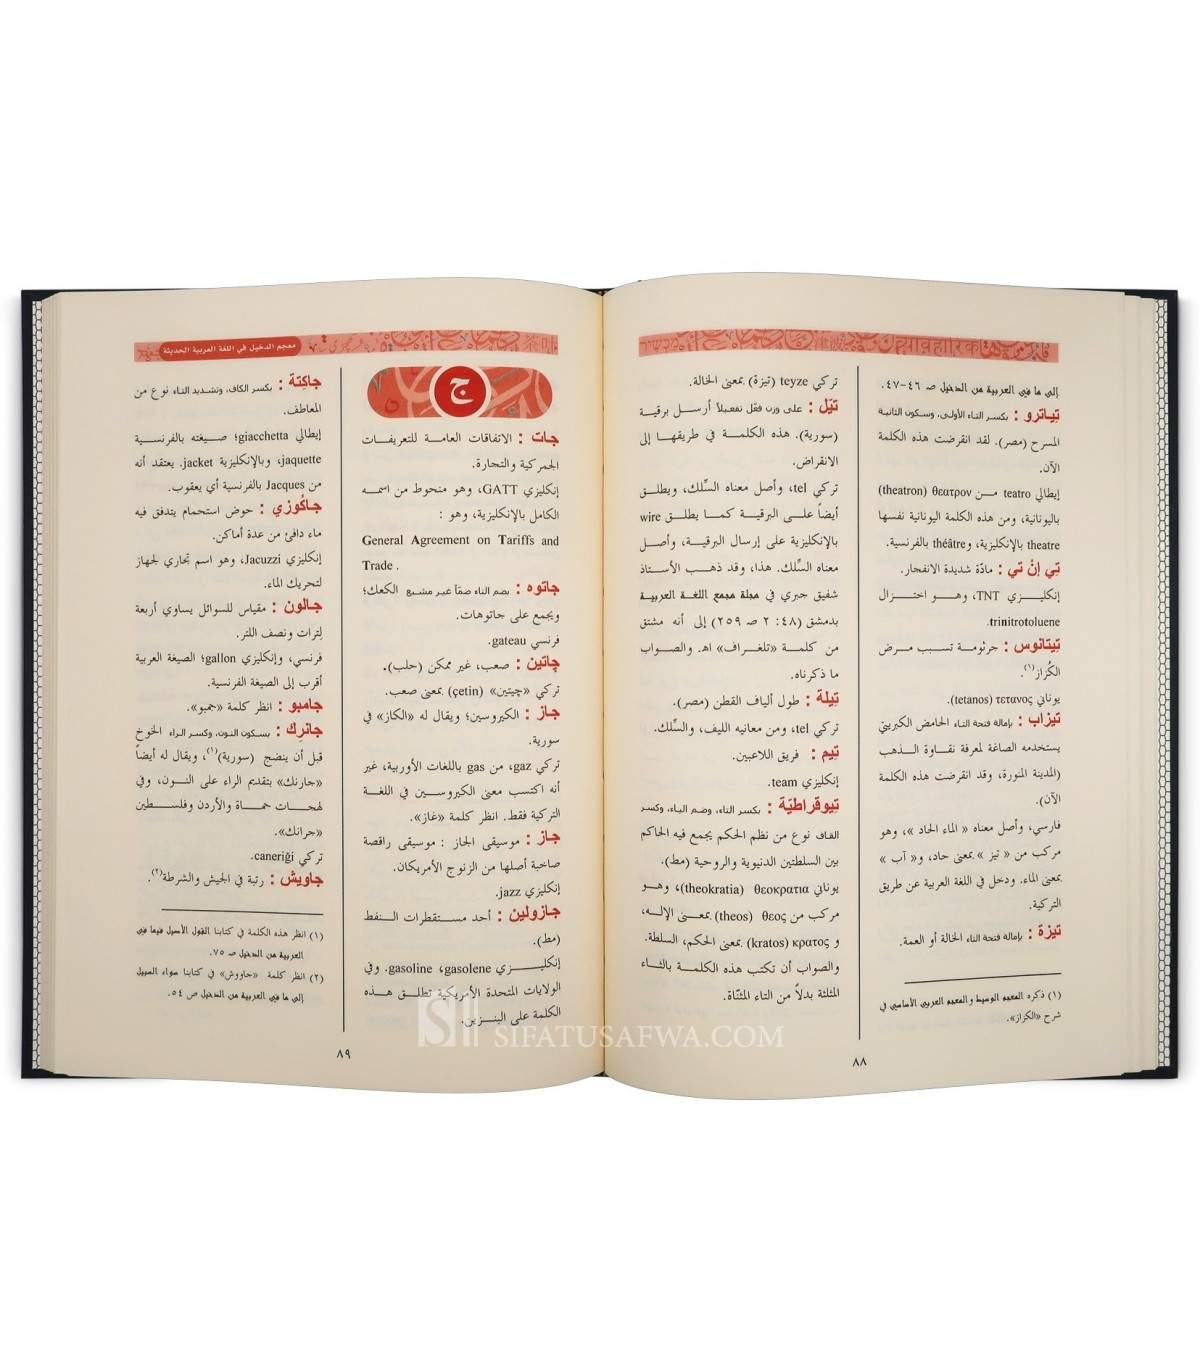 إلى ما في العربية من الدخيل ص ٤٦-٤٧.
تِياترو : بكسر التاء الأولى، وسكون الثانية
المسرح (مصر). لقد انقرضت هذه الكلمة
الآن.
إيطالي teatro من θεατρον (theatron)
باليونانية، ومن هذه الكلمة اليونانية نفسها
theatre بالإنكليزية، وthéâtre بالفرنسية.
تِي إنْ تي : مادّة شديدة الانفجار.
إنكليزي TNT، وهو اختزال
trinitrotoluene.
تِيتانوس : جرثومة تسبب مرض
الكُزاز(١).
يوناني τετανος (tetanos).
تيزاب : بإمالة فتحة التاء الحامض الكبريتي
يستخدمه الصاغة لمعرفة نقاوة الذهب
(المدينة المنورة، وقد انقرضت هذه الكلمة
الآن).
فارسي، وأصل معناه « الماء الحاد »، وهو
مركب من « تيز » بمعنى حاد، و« آب »
بمعنى الماء. ودخل في اللغة العربية عن طريق
التركية.
تيزة : بإمالة فتحة التاء الخالة أو العمة.
(١) ذكره المعجم الوسيط والمعجم العربي الأساسي في
شرح «الكزاز».
تركي teyze (تيزة) بمعنى الخالة.
تيّل : على وزن فعّل تفعيلاً أرسل برقية
(سورية). هذه الكلمة في طريقها إلى
الانقراض.
تركي tel، وأصل معناه السِّلك، ويطلق
أيضاً على البرقية كما يطلق wire
بالإنكليزية على إرسال البرقية، وأصل
معناه السِّلك. هذا، وقد ذهب الأستاذ
شفيق جبري في مجلة مجمع اللغة العربية
بدمشق (٤٨: ٢ ص ٢٥٩) إلى أنه مشتق
من كلمة «تلغراف» اهـ. والصواب
ما ذكرناه.
تِيلة : طول ألياف القطن (مصر).
تركي tel، ومن معانيه الليف، والسِّلك.
تيم : فريق اللاعبين.
إنكليزي team.
تيوقراطيّة : بكسر التاء، وضم الياء، وكسر
القاف نوع من نظم الحكم يجمع فيه الحاكم
بين السلطتين الدنيوية والروحية (مط).
يوناني θεοκρατια (theokratia)، وهو
مركب من θεος (theos) بمعنى الإله،
و κρατος (kratos) بمعنى الحكم، السلطة.
والصواب أن تكتب هذه الكلمة بالثاء
المثلثة بدلاً من التاء المثنّاة.
٨٨
معجم الدخيل في اللغة العربية الحديثة
ج
جات : الاتفاقات العامة للتعريفات
الجمركية والتجارة.
إنكليزي GATT، وهو منحوط من اسمه
الكامل بالإنكليزية، وهو :
General Agreement on Tariffs and
Trade .
جاتوه : بضم التاء ضمّا غير مشبع الكعك؛
ويجمع على جاتوهات.
فرنسي gateau.
چاتين : صعب، غير ممكن (حلب).
تركي «چيتين» (çetin) بمعنى صعب.
جاز : الكيروسين؛ ويقال له «الكاز» في
سورية.
تركي gaz، من gas باللغات الأوربية، غير
أنه اكتسب معنى الكيروسين في اللغة
التركية فقط. انظر كلمة «غاز».
جاز : موسيقى الجاز : موسيقى راقصة
صاخبة أصلها من الزنوج الأمريكان.
إنكليزي jazz.
جازولين : أحد مستقطرات النفط
(مط).
إنكليزي gasoline ،gasolene. وفي
الولايات المتحدة الأمريكية تطلق هذه
الكلمة على البنزين.
جاكِتة : بكسر الكاف، وتشديد التاء نوع من
المعاطف.
إيطالي giacchetta؛ صيغته بالفرنسية
jaquette، وبالإنكليزية jacket. يعتقد أنه
من Jacques بالفرنسية أي يعقوب.
جاكُوزي : حوض استحمام يتدفق فيه
ماء دافئ من عدة أماكن.
إنكليزي Jacuzzi، وهو اسم تجاري لجهاز
لتحريك الماء.
جالون : مقياس للسوائل يساوي أربعة
لِترات ونصف اللتر.
فرنسي، وإنكليزي gallon؛ الصيغة العربية
أقرب إلى الصيغة الفرنسية.
جامبو : انظر كلمة «جمبو».
جانرِك : بسكون النون، وكسر الراء الخوخ
قبل أن ينضج (سورية)(١)، ويقال له أيضاً
«جارنك» بتقديم الراء على النون، وفي
لهجات حماة والأردن وفلسطين
«جرانك».
تركي caneriği.
جاويش : رتبة في الجيش والشرطة(٢).
(١) انظر هذه الكلمة في كتابنا القول الأصيل فيما في
العربية من الدخيل ص ٧٥.
(٢) انظر كلمة «جاووش» في كتابنا سواء السبيل
إلى ما في العربية من الدخيل ص ٥٤.
٨٩
SIFATUSAFWA.COM